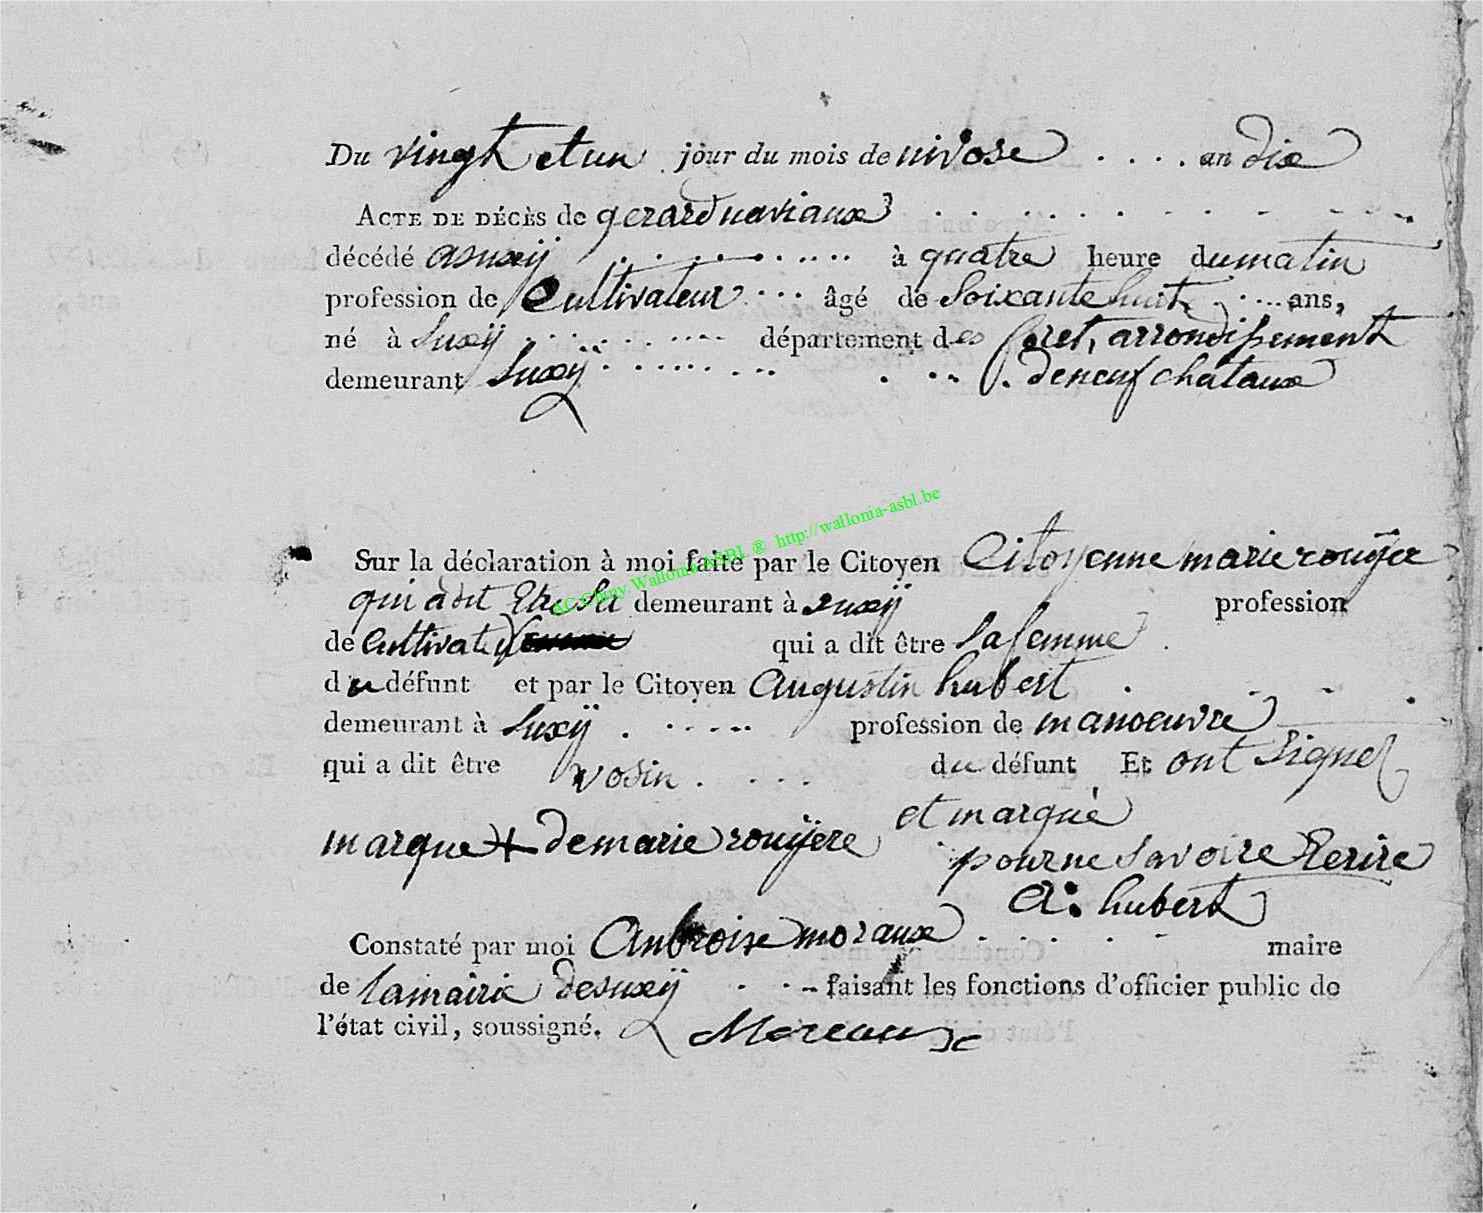 Du vingt et un jour du mois de nivose .... an dix
ACTE DE DÉCÈS de gerard naviaux
décédé a suxÿ à quatre heure du matin
profession de Cultivateur ... âgé de soixante huit .... ans,
né à Suxÿ département des foret, arrondissement
demeurant Suxÿ de neufchataux
AC Chiny Wallonia ASBL @ http://wallonia-asbl.be
Sur la déclaration à moi faite par le Citoyen Citoyenne marie rouÿer
qui a dit Etre demeurant à suxÿ profession
de Cultivat qui a dit être la femme
du défunt et par le Citoyen Augustin hubert
demeurant à Suxÿ profession de manoeuvre
qui a dit être vosin du défunt Et ont signe
et marqué
marque + de marie rouÿere pour ne savoire Ecrire
A: hubert
Constaté par moi Anbroise moraux maire
de la mairie de suxÿ faisant les fonctions d'officier public de
l'état civil, soussigné. Moreaux